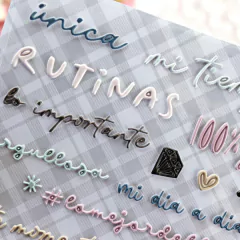 única
mi tiem
RUTINAS
lo importante
100%
rgullosa
mi día a día
#lomejordel